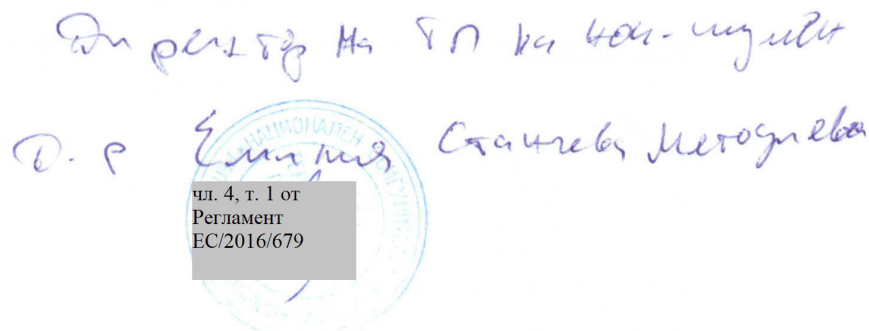 Директор на ТП на НОИ - Шумен
Д-р Емилия Станчева Методиева
НАЦИОНАЛЕН
чл. 4, т. 1 от
Регламент
ЕС/2016/679